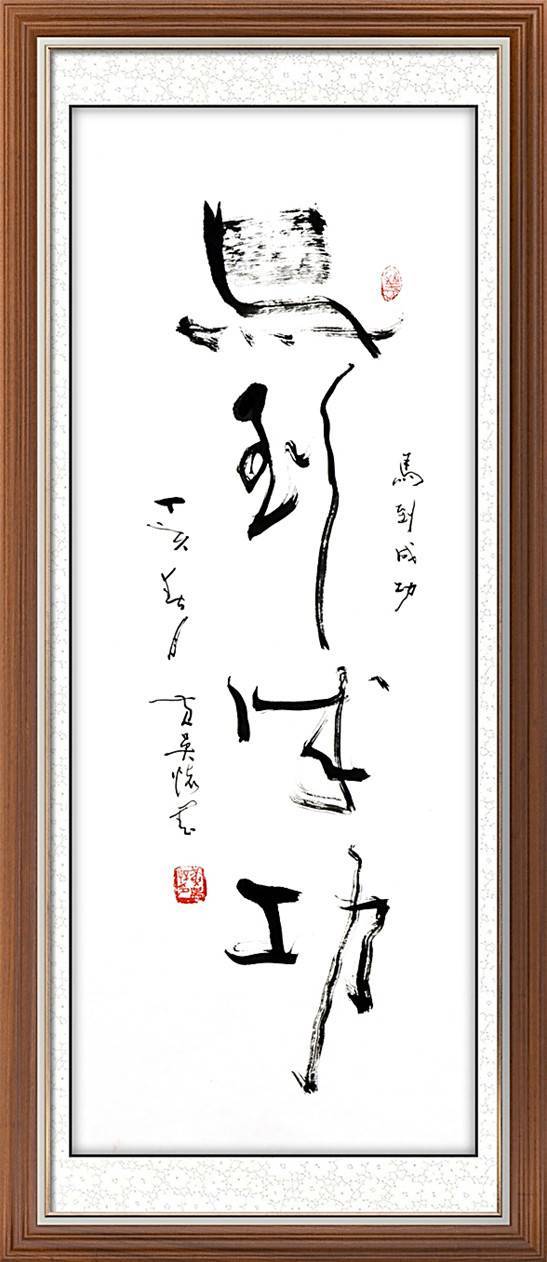 馬到成功
馬到成功
丁亥春月